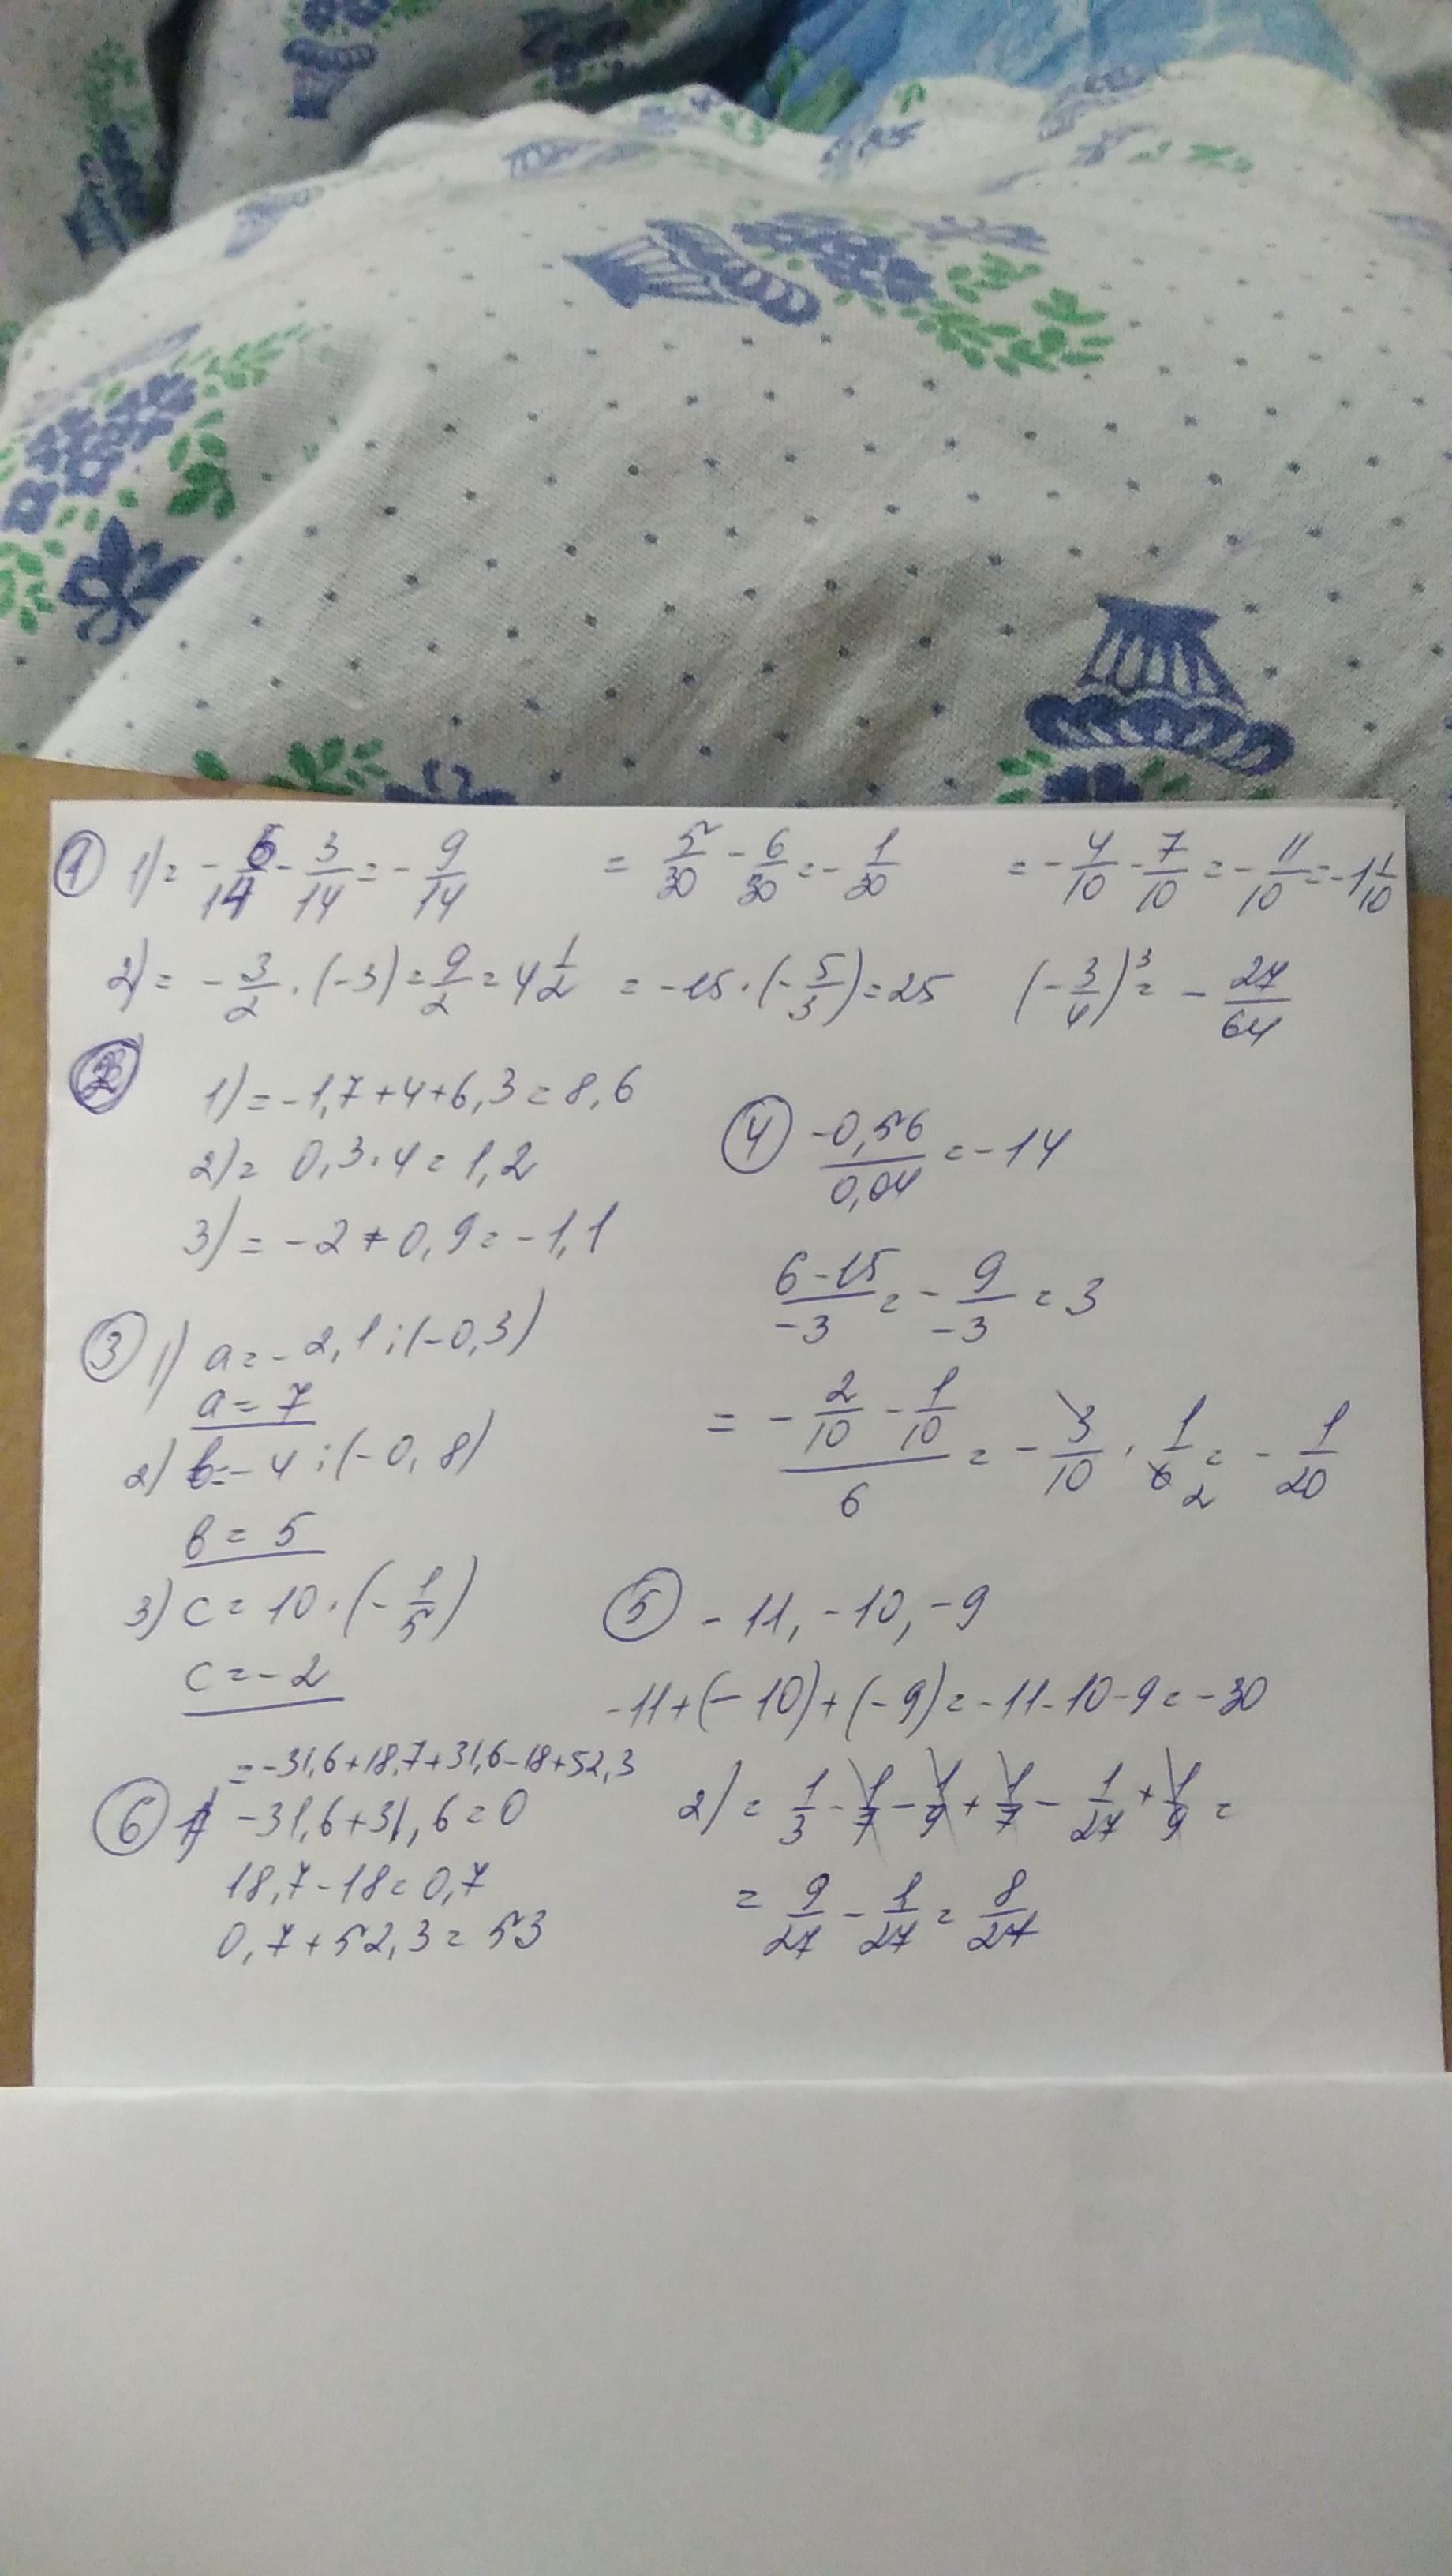 ① 1) = - 6/14 - 3/14 = - 9/14   = 5/30 - 6/30 = - 1/30   = - 4/10 - 7/10 = - 11/10 = -1 1/10
2) = - 3/2 · (-3) = 9/2 = 4 1/2   = -15 · (- 5/3) = 25   (- 3/4)³ = - 27/64
②
1) = -1,7 + 4 + 6,3 = 8,6
2) = 0,3 · 4 = 1,2
3) = -2 + 0,9 = -1,1
④ -0,56/0,04 = -14
6-15/-3 = - 9/-3 = 3
= (- 2/10 - 1/10)/6 = - 3/10 · 1/6 2 = - 1/20
③ 1) a = -2,1 : (-0,3)
a = 7
2) b = -4 : (-0,8)
b = 5
3) c = 10 · (- 1/5)
c = -2
⑤ -11, -10, -9
-11 + (-10) + (-9) = -11 - 10 - 9 = -30
= -31,6 + 18,7 + 31,6 - 18 + 52,3
⑥ 1) -31,6 + 31,6 = 0
18,7 - 18 = 0,7
0,7 + 52,3 = 53
2) = 1/3 - 1/7 - 1/9 + 1/7 - 1/27 + 1/9 =
= 9/27 - 1/27 = 8/27